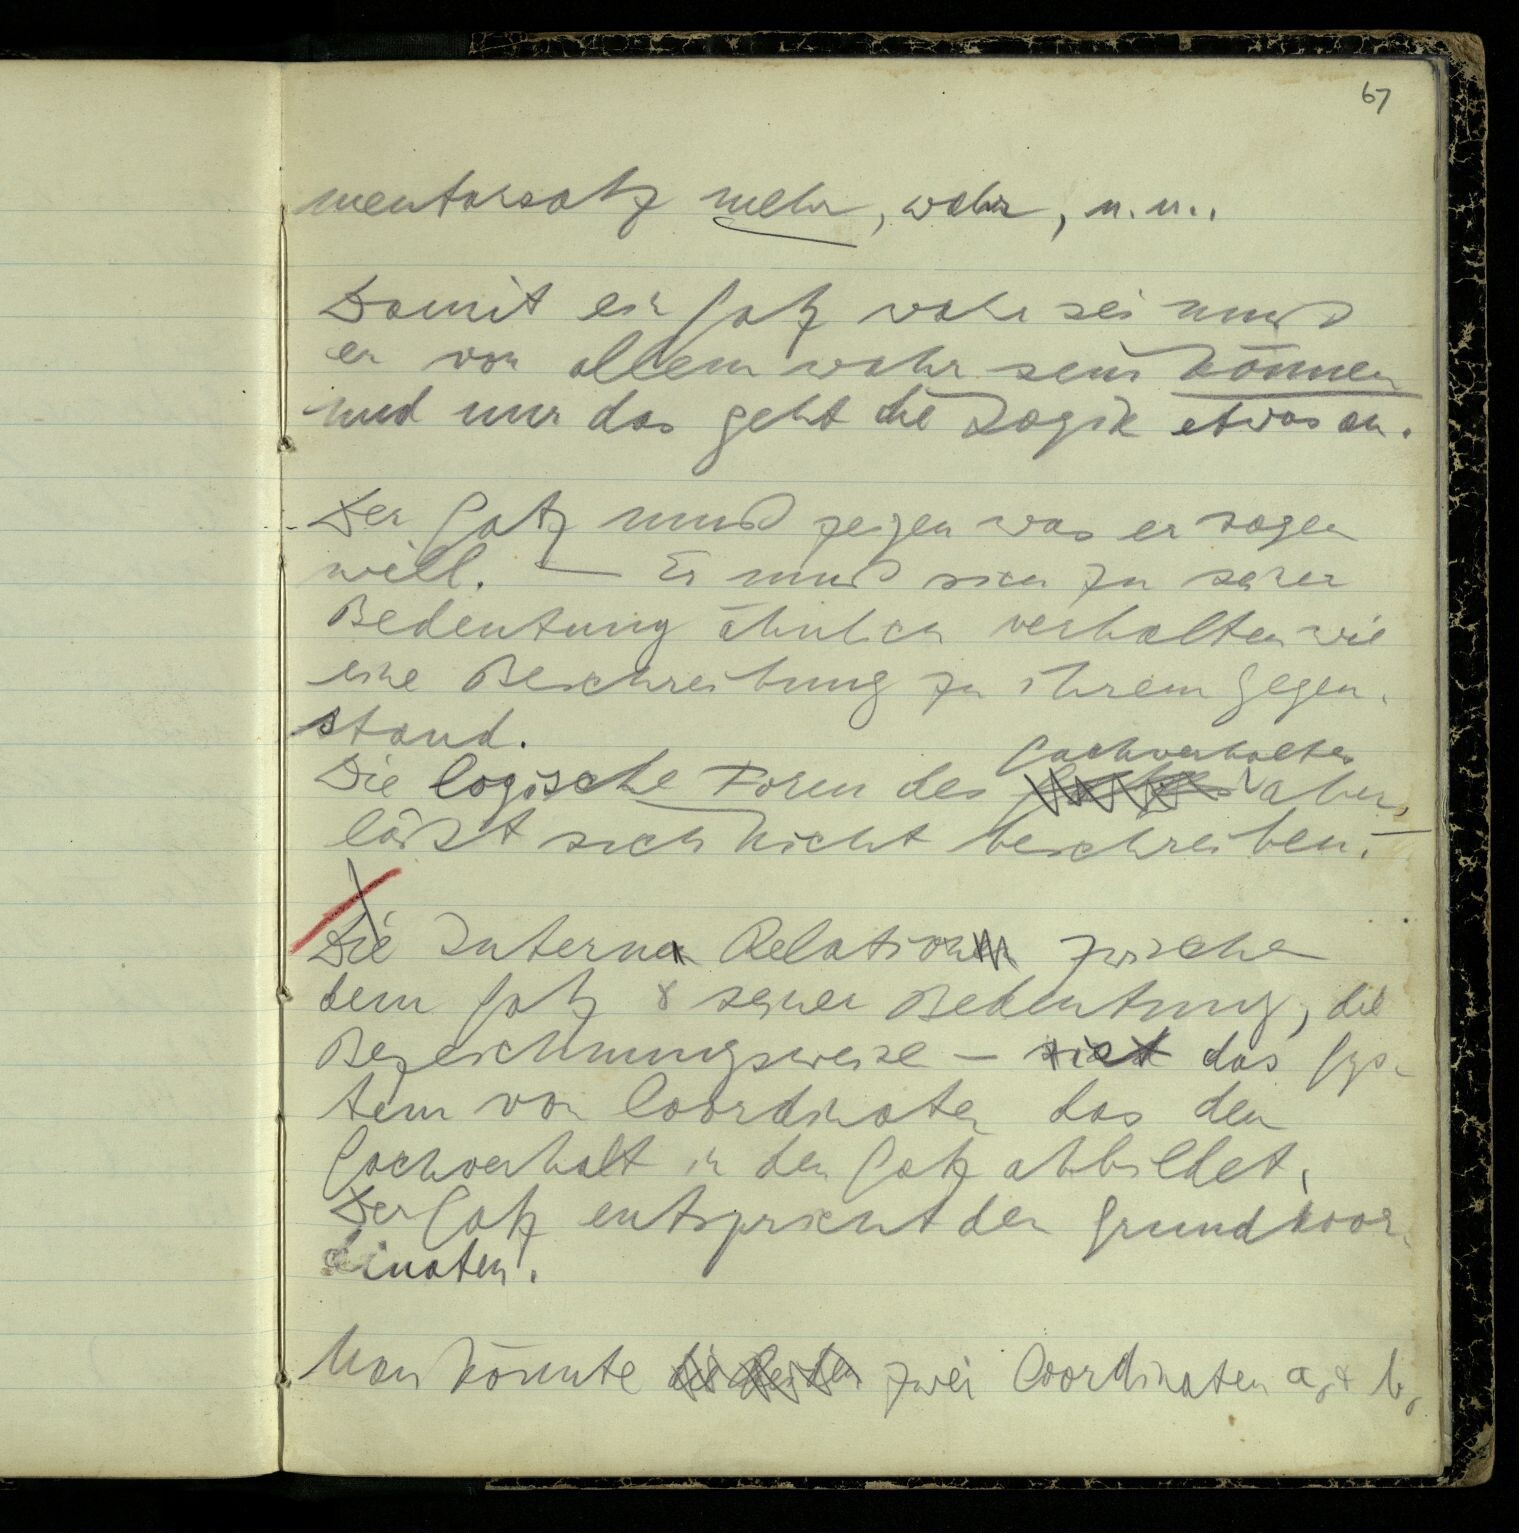 67
mentarsatz mehr, wahr, u.u..
Damit ein Satz wahr sei muß
er vor allem wahr sein können
und nur das geht die Logik etwas an.
Der Satz muß zeigen was er sagen
will. — Er muß sich zu seiner
Bedeutung ähnlich verhalten wie
eine Beschreibung zu ihrem Gegen-
stand.
Sachverhaltes
Die logische Form des aber,
läßt sich nicht beschreiben.—
Die Interne Relation zwischen
dem Satz & seiner Bedeutung, die
Bezeichnungsweise — ist das Sys-
tem von Coordinaten das den
Sachverhalt in den Satz abbildet.
Der Satz entspricht den Grundkoor-
dinaten.
Man könnte die beiden zwei Coordinaten a, & b,